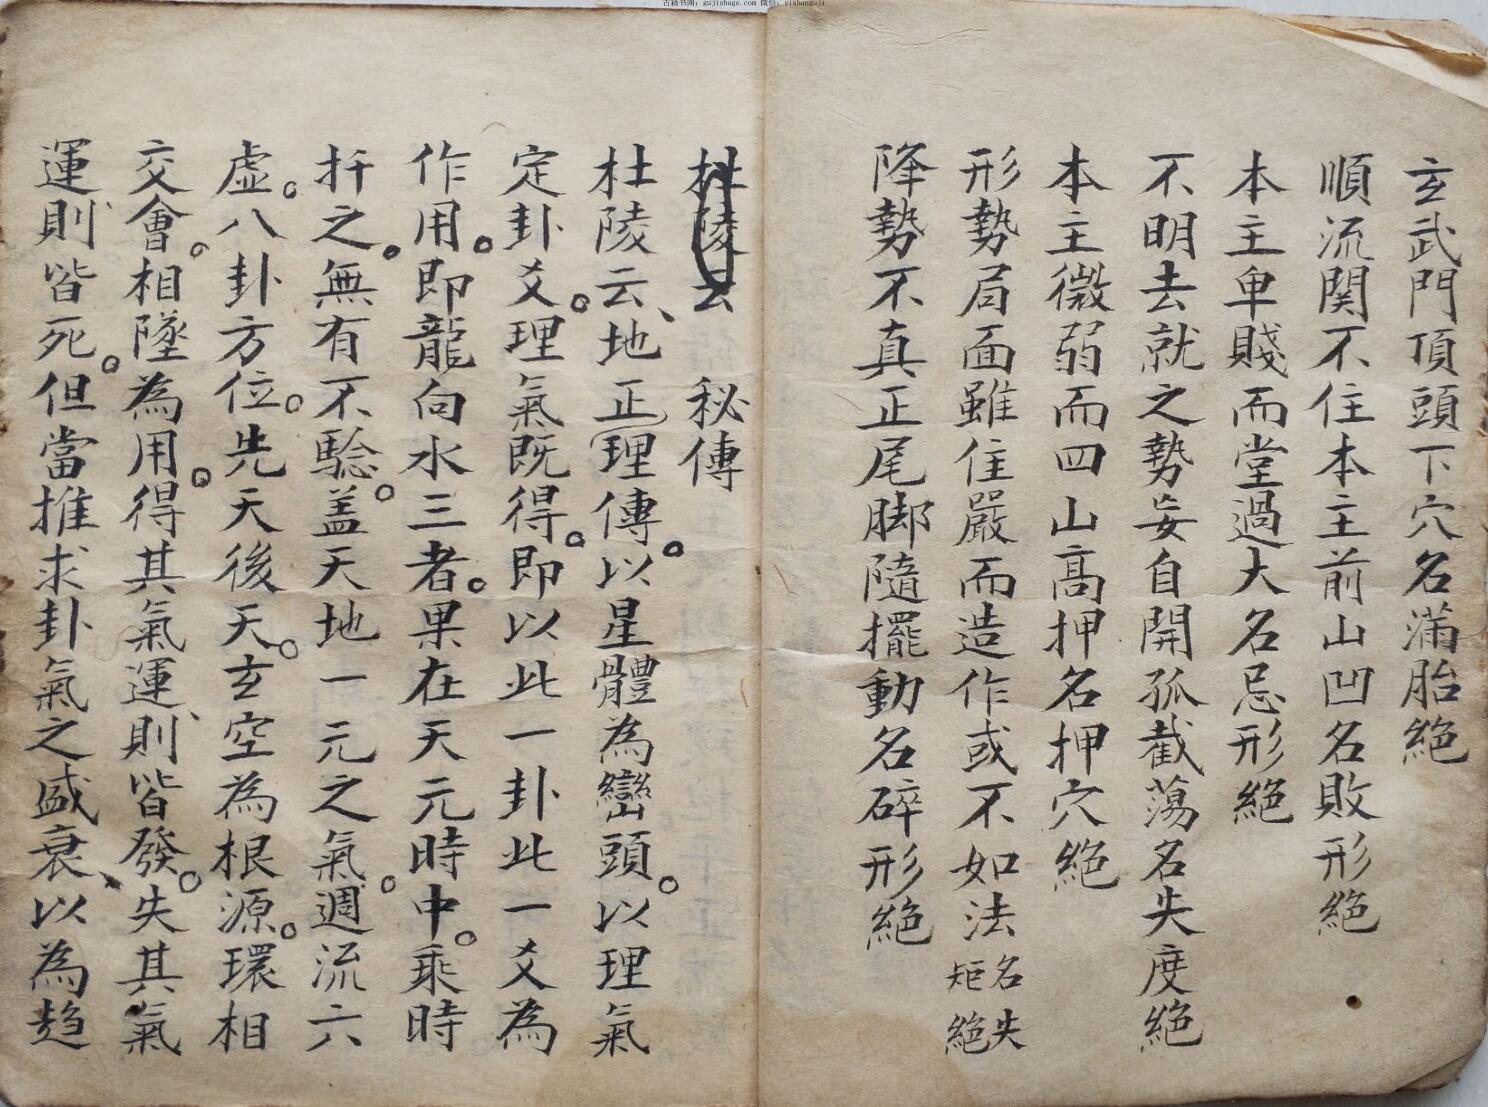 古籍书阁：gujishuge.com 微信：yishanguji
玄武門頂頭下穴名滿胎絕
順流関不住本主前山凹名敗形絕
本主卑賤而堂過大名忌形絕
不明去就之勢妄自開孤截蕩名失度絕
本主微弱而四山高押名押穴絕
形勢局面雖住嚴而造作或不如法名失矩絕
降勢不真正尾脚隨擺動名碎形絕
杜陵云 秘傳
杜陵云、地正理傳。以星體為巒頭。以理氣
定卦爻。理氣既得。即以此一卦此一爻為
作用。即龍向水三者。果在天元時中。乘時
扦之。無有不騐。盖天地一元之氣。週流六
虛。八卦方位。先天後天。玄空為根源。環相
交會。相墜為用。得其氣運、則皆發。失其氣
運、則皆死。但當推求卦氣之盛衰、以為趋